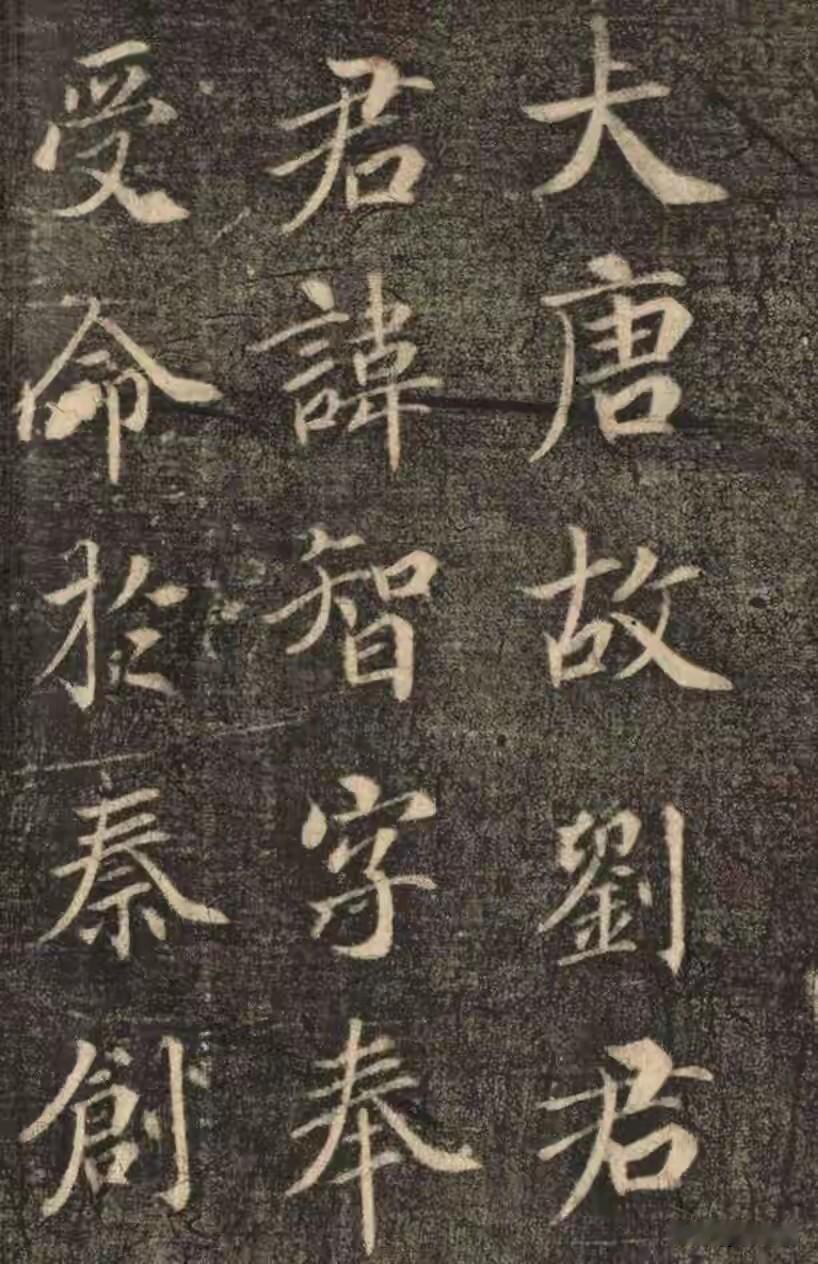 大唐故劉君
君諱智字奉
受命於秦創